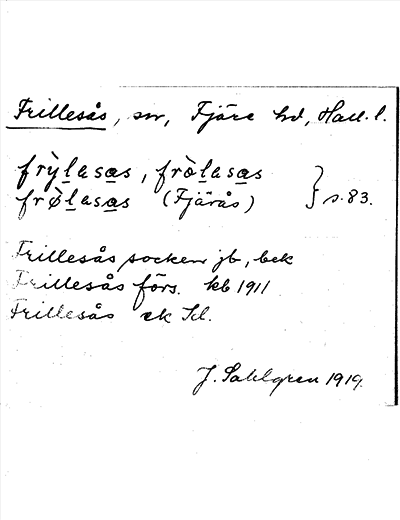 Frillesås, sn, Fjäre hd, Hall. l.
frỳlasas, fròlasas
frø̀lasas (Fjärås) } s. 83.
Frillesås socken jb, bek
Frillesås förs. kb 1911
Frillesås ek Sd.
J. Sahlgren 1919.